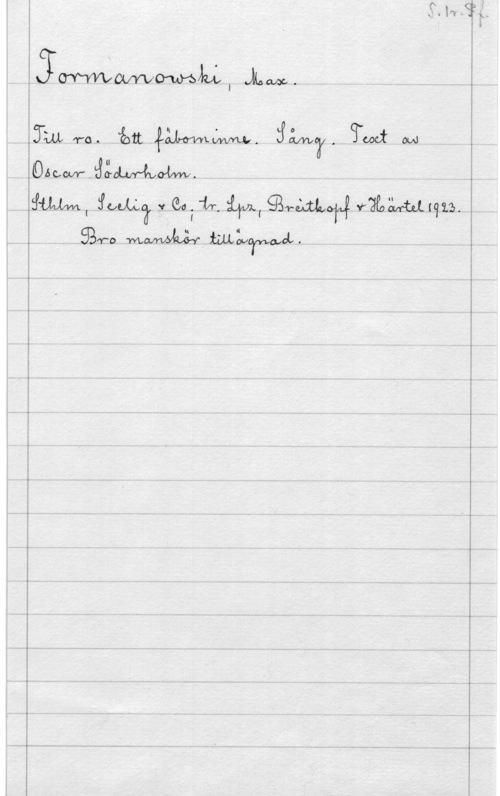 S. tr. Pf.
Formanowski, Max.
Till ro. Ett fäbominne. Sång. Text av
Oscar Söderholm.
Sthlm, Seelig & Co; tr. Lpz, Breitkopf & Härtel 1923.
Bro manskör tillägnad.